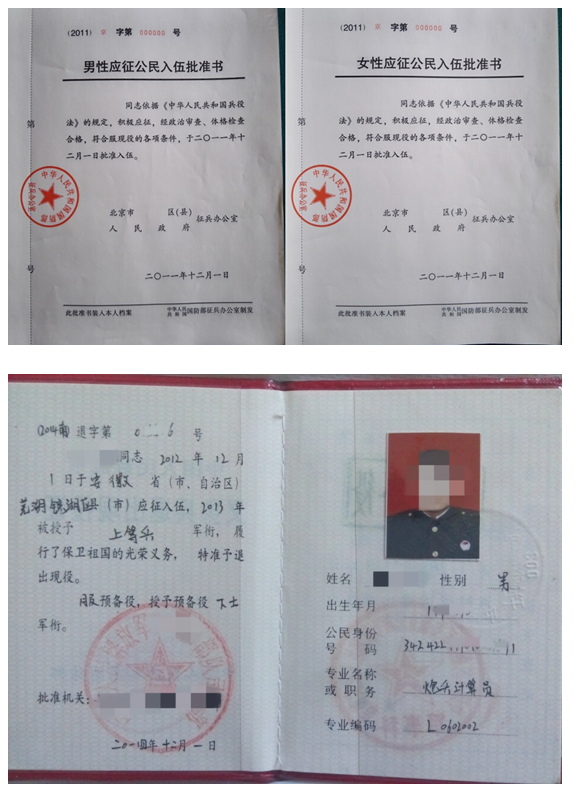 (2011) 字第 000000 号
男性应征公民入伍批准书
同志依据《中华人民共和国兵役
法》的规定，积极应征，经政治审查、体格检查
合格，符合服现役的各项条件，于二〇一一年十
二月一日批准入伍。
第
中华人民共和国国防部
征兵办公室
北京市 区(县) 征兵办公室
人民政府
号
二〇一一年十二月一日
此批准书装入本人档案
中华人民共和国国防部征兵办公室制发
(2011) 字第 000000 号
女性应征公民入伍批准书
同志依据《中华人民共和国兵役
法》的规定，积极应征，经政治审查、体格检查
合格，符合服现役的各项条件，于二〇一一年十
二月一日批准入伍。
第
中华人民共和国国防部
征兵办公室
北京市 区(县) 征兵办公室
人民政府
号
二〇一一年十二月一日
此批准书装入本人档案
中华人民共和国国防部征兵办公室制发
退字第 0 6 号
同志 2012 年 12 月
1 日于 安徽 省(市、自治区)
芜湖镜湖区县(市)应征入伍，2013 年
被授予 上等兵 军衔，履
行了保卫祖国的光荣义务，特准予退
出现役。
服预备役，授予预备役 下士
军衔。
批准机关：
二〇一四年十二月一日
姓名 性别 男
出生年月 1
公民身份
号码 342422 11
专业名称
或职务 炮兵计算员
专业编码 L0602002